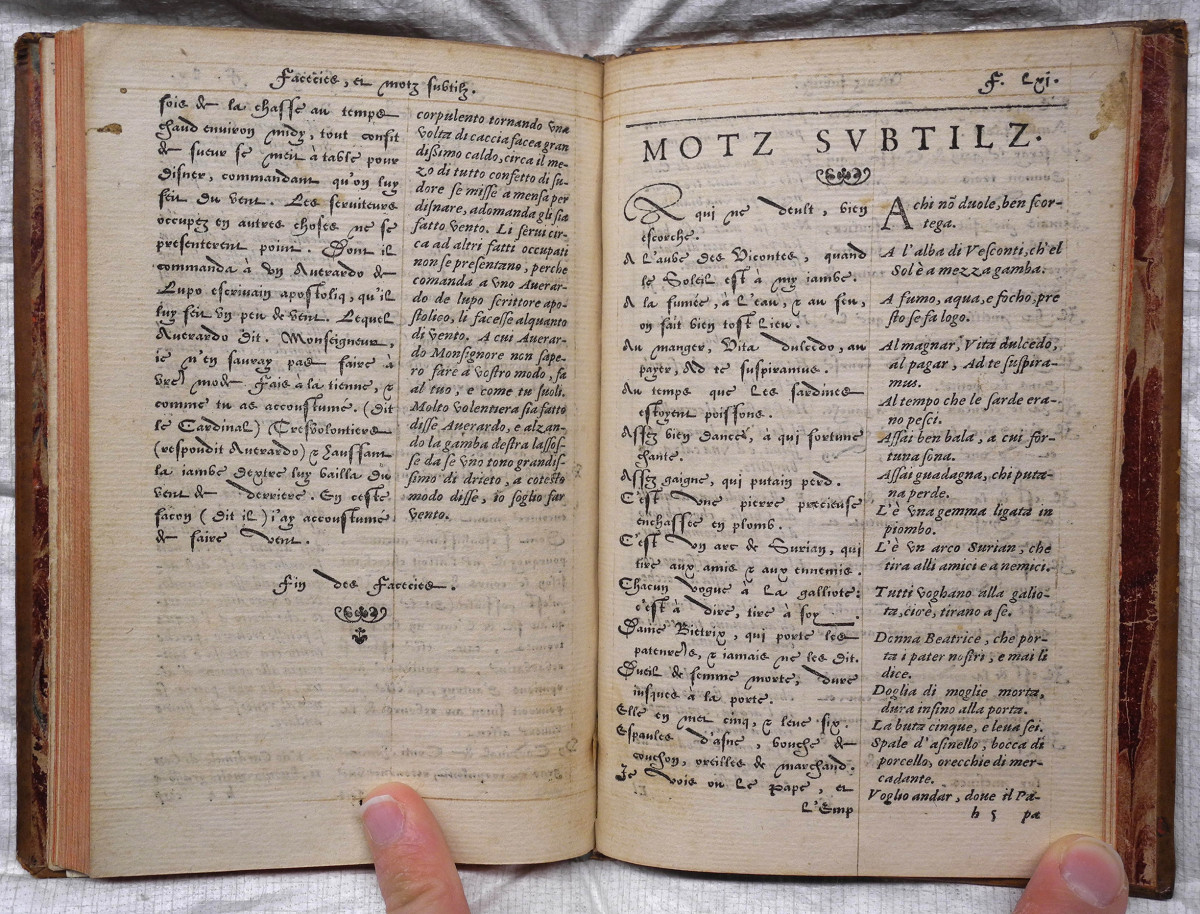 Facecies, et motz subtilz.
sois de la chasse au temps
chaud environ midy, tout confit
de sueur se meit à table pour
disner, commandant qu'on luy
feit du vent. Les serviteurs
occupez en autres choses ne se
presenterent point. Dont il
commanda à vn Averardo de
Lupo escrivain apostoliq, qu'il
luy feit vn peu de vent. Lequel
Averardo dit. Monseigneur,
ie n'en sauray pas faire à
vre mode. Fais à la tienne, &
comme tu as accoustumé. (dit
le Cardinal) Tresvolontiers
(respondit Averardo) & haussant
la iambe dextre luy bailla du
vent de derriere. En ceste
facon (dit il) i'ay accoustumé
de faire vent.
corpulento tornando vna
volta di caccia facea gran
dißimo caldo, circa il me-
zo di tutto confetto di su-
dore se misse a mensa per
disnare, adomanda gli sia
fatto vento. Li serui cir-
ca ad altri fatti occupati
non se presentano, perche
comanda a vno Auerar-
do de lupo scrittore apo-
stolico, li facesse alquanto
di vento. A cui Auerar-
do Monsignore non sape-
ro fare a vostro modo, fa
al tuo, e come tu suoli.
Molto volentiera sia fatto
disse Auerardo, e alzan-
do la gamba destra lassos-
se da se vno tono grandis-
simo di drieto, a cotesto
modo disse, io soglio far
vento.
Fin des Facecies.
F. lxi.
MOTZ SVBTILZ.
A qui ne deult, bien
escorche.
A l'aube des Vicontes, quand
le Soleil est à my iambe.
A la fumée, à l'eau, & au feu,
on fait bien tost lieu.
Au manger, Vita dulcedo, au
payer, Ad te suspiramus.
Au temps que les sardines
estoyent poissons.
Assez bien dance, à qui fortune
chante.
Assez gaigne, qui putain perd.
C'est vne pierre precieuse
enchassee en plomb.
C'est vn arc de Surian, qui
tire aux amis & aux ennemis.
Chacun vogue à la galliote:
c'est à dire, tire à soy.
Dame Bietrix, qui porte les
patenres, & iamais ne les dit.
Dueil de femme morte, dure
iusques à la porte.
Elle en met cinq, & leve six.
Espaules d'asne, bouche de
couchon, oreilles de marchand.
Je vois ou le Pape, et
l'Emp
A chi nō duole, ben scor-
tega.
A l'alba di Vesconti, ch'el
Sol è a mezza gamba.
A fumo, aqua, e focho, pre
sto se fa logo.
Al magnar, Vita dulcedo,
al pagar, Ad te suspira-
mus.
Al tempo che le sarde era-
no pesci.
Assai ben bala, a cui for-
tuna sona.
Assai guadagna, chi puta-
na perde.
L'è vna gemma ligata in
piombo.
L'è vn arco Surian, che
tira alli amici e a nemici.
Tutti voghano alla galio-
ta, cioè, tirano a se.
Donna Beatrice, che por-
ta i pater nostri, e mai li
dice.
Doglia di moglie morta,
dura insino alla porta.
La buta cinque, e leua sei.
Spale d'asinello, bocca di
porcello, orecchie di mer-
cadante.
Voglio andar, doue il Pa-
h 5 pa